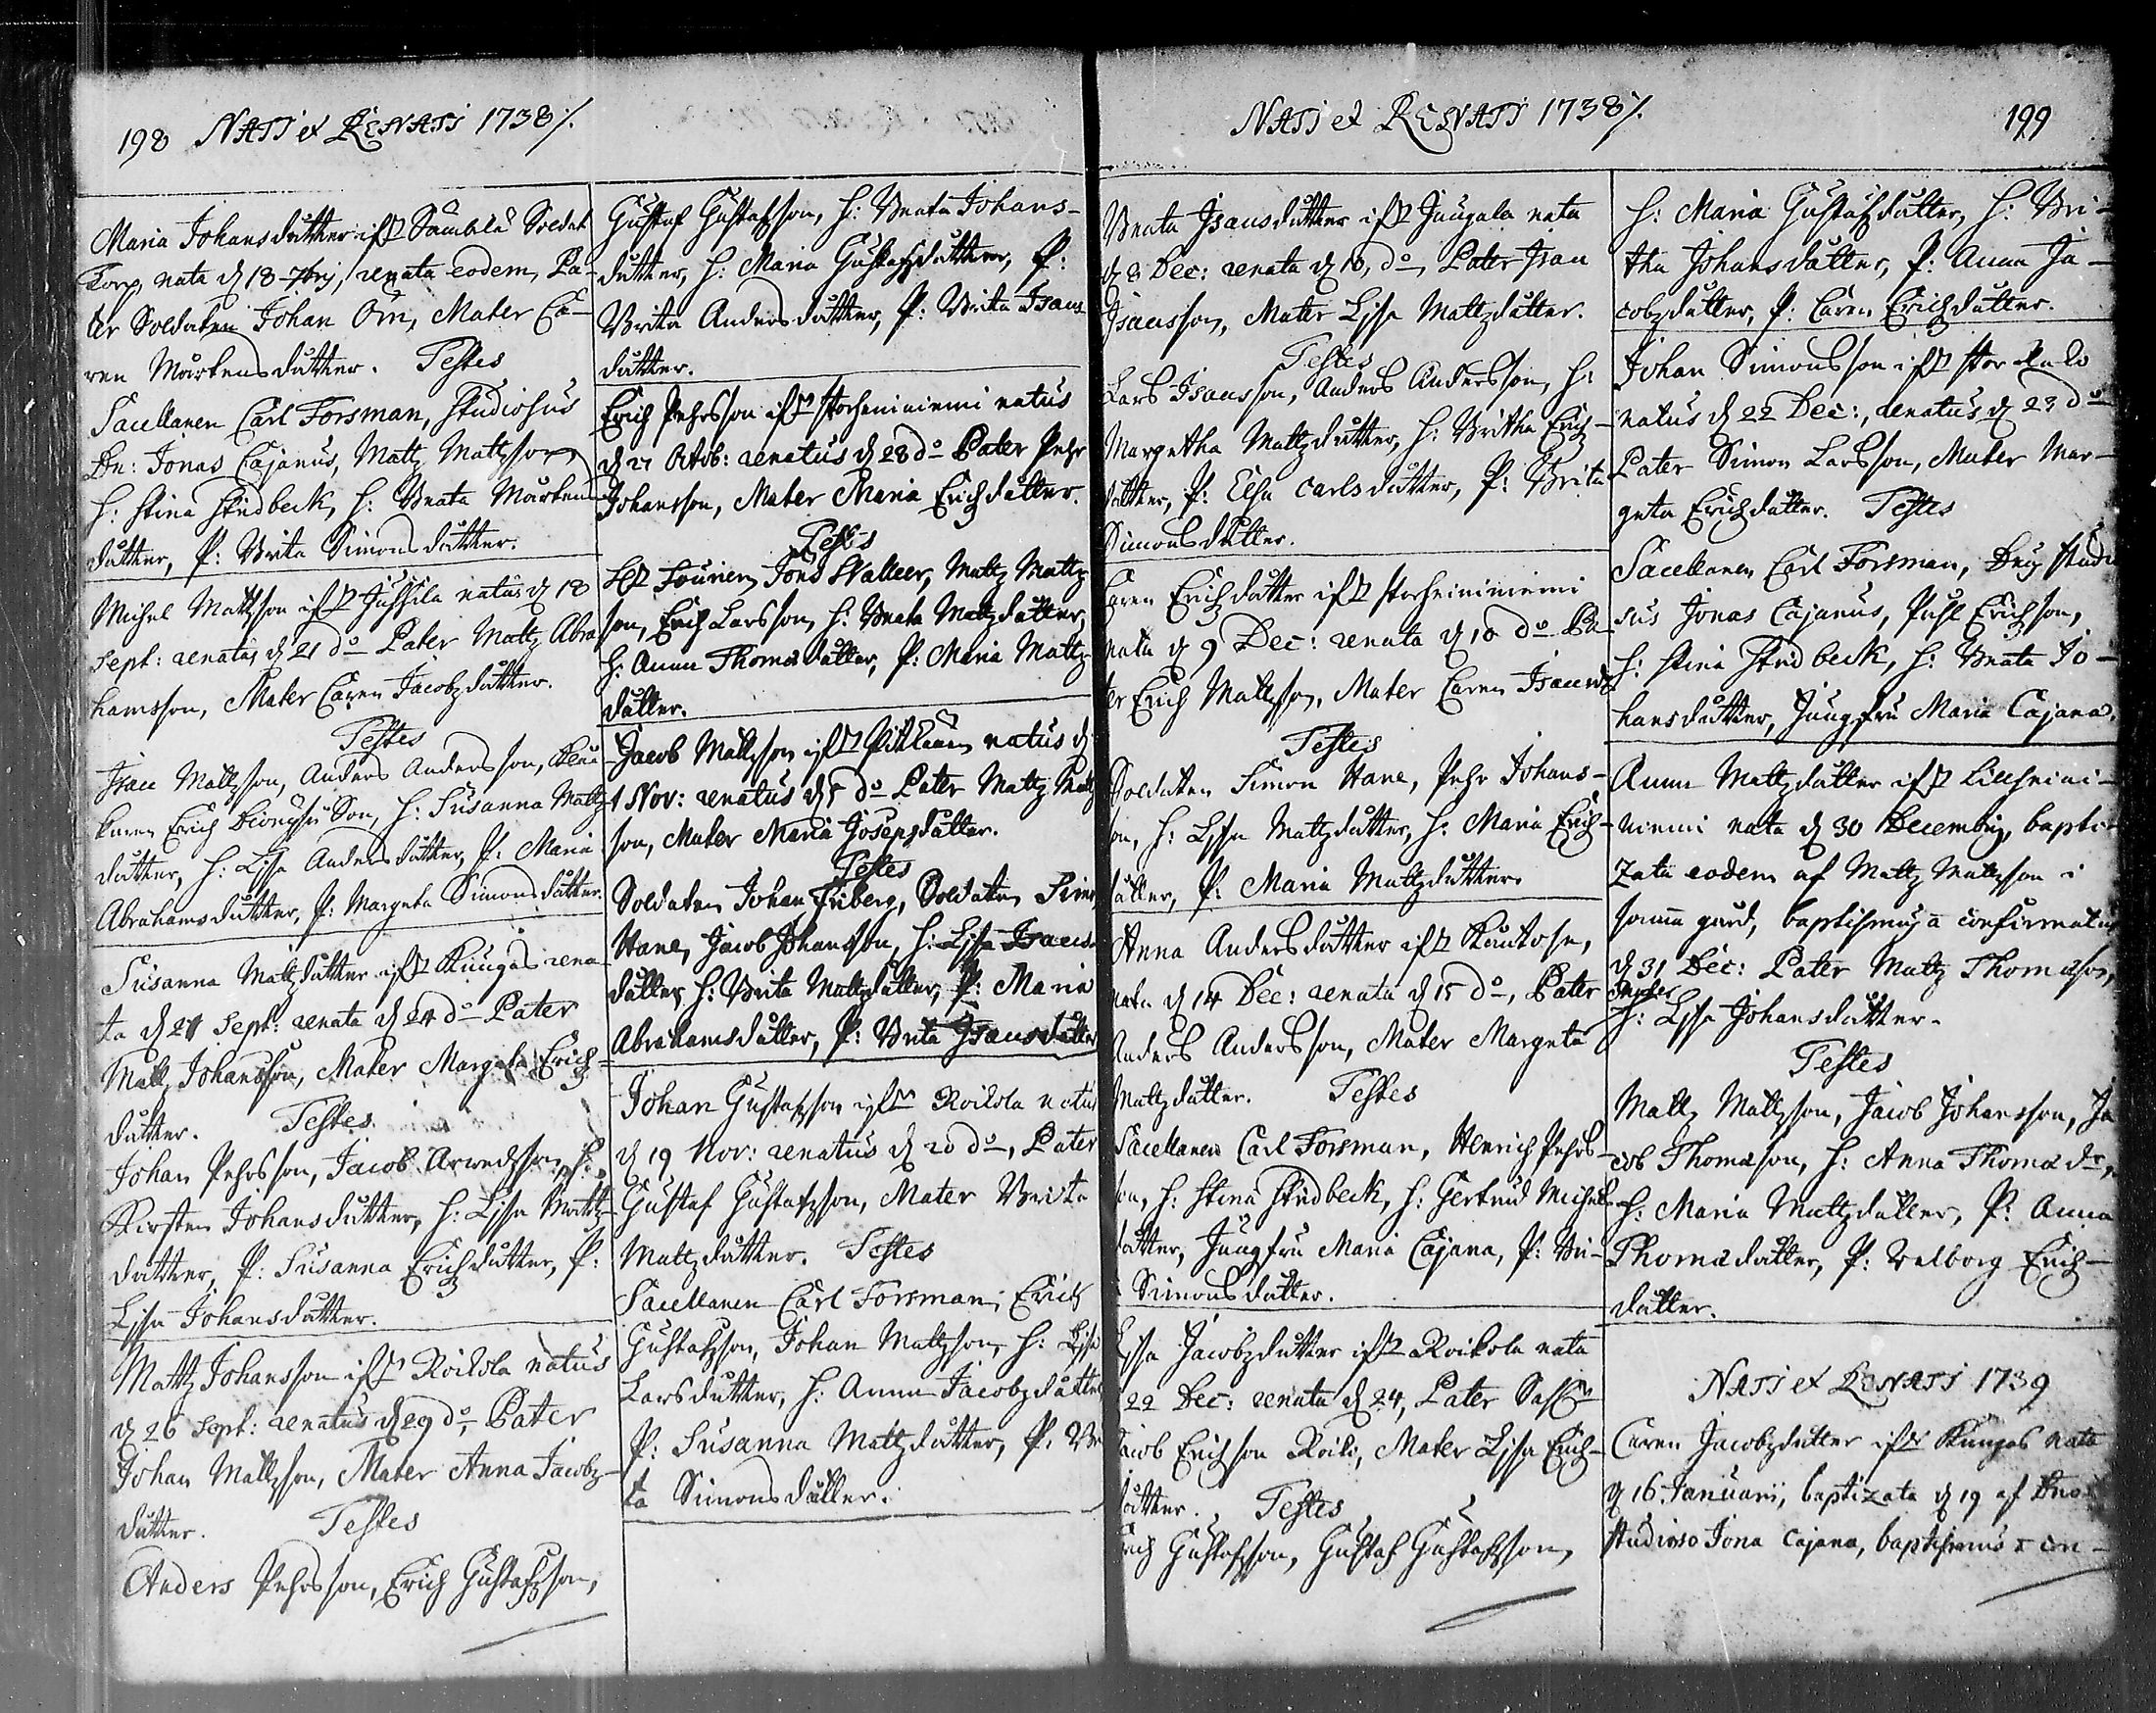 198 NATI et RENATI 1738 ⁒
Maria Johansdutter ifr Sambla Soldat
Torp, nata d 18 7brj, renata eodem, Pa-
ter Soldaten Johan Örn, Mater Ca-
ren Mårtensdutter. Testes
Sacellanen Carl Forsman, Studiosus
Dn: Jonas Cajanus, Mattz Mattzson,
H: Stina Stedbeck, H: Beata Mårtens
dutter, P: Brita Simonsdutter.
Michel Mattzson ifr Jussila natus d 18
Sept: renatus d 21 do Pater Mattz Abra
hamsson, Mater Caren Jacobzdutter.
Testes
Isac Mattzson, Anders Andersson,
Erich Son, H: Susanna Mattz
dutter, H: Lisa Andersdutter, P: Maria
Abrahamsdutter, P: Margeta Simonsdutter.
Susanna Mattzdutter ifr Kangas rena
ta d 21 Sept: renata d 24 do Pater
Mattz Johansson, Mater Margeta Erich-
dutter. Testes
Johan Pehrsson, Jacob Arwedzson, H:
Kirsten Johansdutter, H: Lisa Mattz
dutter, P: Susanna Erichdutter, P:
Lisa Johansdutter.
Mattz Johansson ifr Roikola natus
d 26 Sept: renatus d 29 do, Pater
Johan Mattzson, Mater Anna Jacobz-
dutter. Testes
Anders Pehrsson, Erich Gustafzson,
Gustaf Gustafzson, H: Beata Johans-
dutter, H: Maria Gustafzdutter, P:
Brita Andersdutter, P: Brita Isacs
dutter.
Erich Pehrsson ifr Storheiniemi natus
d 27 Octob: renatus d 28 do Pater Pehr
Johansson, Mater Maria Erichdutter.
Testes
Fourieren Jöns Walleer, Mattz Mattz
son, Erich Larsson, H: Beata Mattzdutter,
H: Anna Thomædutter, P: Maria Mattz
dutter.
Jacob Mattzson ifr natus d
1 Nov: renatus d 5 do Pater Mattz Mattz
son, Mater Maria Josepsdutter.
Testes
Soldaten Johan Friberg, Soldaten Simon
Hane, Jacob Johansson, H: Lisa Isacs
dutter, H: Brita Mattzdutter, P: Maria
Abrahamsdutter, P: Brita Isacsdutter
Johan Gustafzson ifr Roikola natus
d 19 Nov: renatus d 20 do, Pater
Gustaf Gustafzson, Mater Brita
Mattzdutter. Testes
Sacellanen Carl Forsman, Erich
Gustafzson, Johan Mattzson, H: Lisa
Larsdutter, H: Anna Jacobzdutter
P: Susanna Mattzdutter, P: Bri
ta Simonsdutter.
NATI et RENATI 1738 ⁒ 199
Beata Isacsdutter ifr Jaugala nata
d 8 Dec: renata d 10, do, Pater Isac
Isacsson, Mater Lisa Mattzdutter.
Testes
Lars Isacsson, Anders Andersson, H:
Margetha Mattzdutter, H: Britha Erich-
dutter, P: Elsa Carlsdutter, P: Brita
Simonsdutter.
Caren Erichdutter ifr Storheiniemi
nata d 9 Dec: renata d 10 do Pa-
ter Erich Mattzson, Mater Caren Isacsd
Testes
Soldaten Simon Hane, Pehr Johans-
son, H: Lisa Mattzdutter, H: Maria Erich-
dutter, P: Maria Mattzdutter.
Anna Andersdutter ifr Rautosu,
nata d 14 Dec: renata d 15 do, Pater
Anders Andersson, Mater Margeta
Mattzdutter. Testes
Sacellanen Carl Forsman, Henrich Pehrs-
son, H: Stina Stedbeck, H: Gertrud Michels
dutter, Jungfru Maria Cajana, P: Bri-
Simonsdutter.
Lisa Jacobzdutter ifr Roikola nata
22 Dec: renata d 24, Pater
Jacob Erichson Roiko, Mater Lisa Erich-
dutter. Testes
Erich Gustafzson, Gustaf Gustafzson,
H: Maria Gustafzdutter, H: Bri-
tha Johansdutter, P: Anna Ja-
cobzdutter, P: Caren Erichdutter.
Johan Simonsson ifr Stor
natus d 22 Dec:, renatus d 23 do
Pater Simon Larsson, Mater Mar-
geta Erichdutter. Testes
Sacellanen Carl Forsman, Studio
sus Jonas Cajanus, Påhl Erichson,
H: Stina Stedbeck, H: Beata Jo-
hansdutter, Jungfru Maria Cajana.
Anna Mattzdutter ifr Lillheini-
niemi nata d 30 Decembrj, bapti-
zata eodem af Mattz Mattzson i
samma gård, baptismus a confirmatus
d 31 Dec: Pater Mattz Thomæson,
Mater
H: Lisa Johansdutter.
Testes
Mattz Mattzson, Jacob Johansson, Ja
cob Thomæson, H: Anna Thomædr,
H: Maria Mattzdutter, P: Anna
Thomædutter, P: Walborg Erich-
dutter.
NATI et RENATI 1739
Caren Jacobzdutter ifr Kangas nata
d 16 Januarij, baptizata d 19 af Dno
Studioso Jona Cajano, baptismus a con-